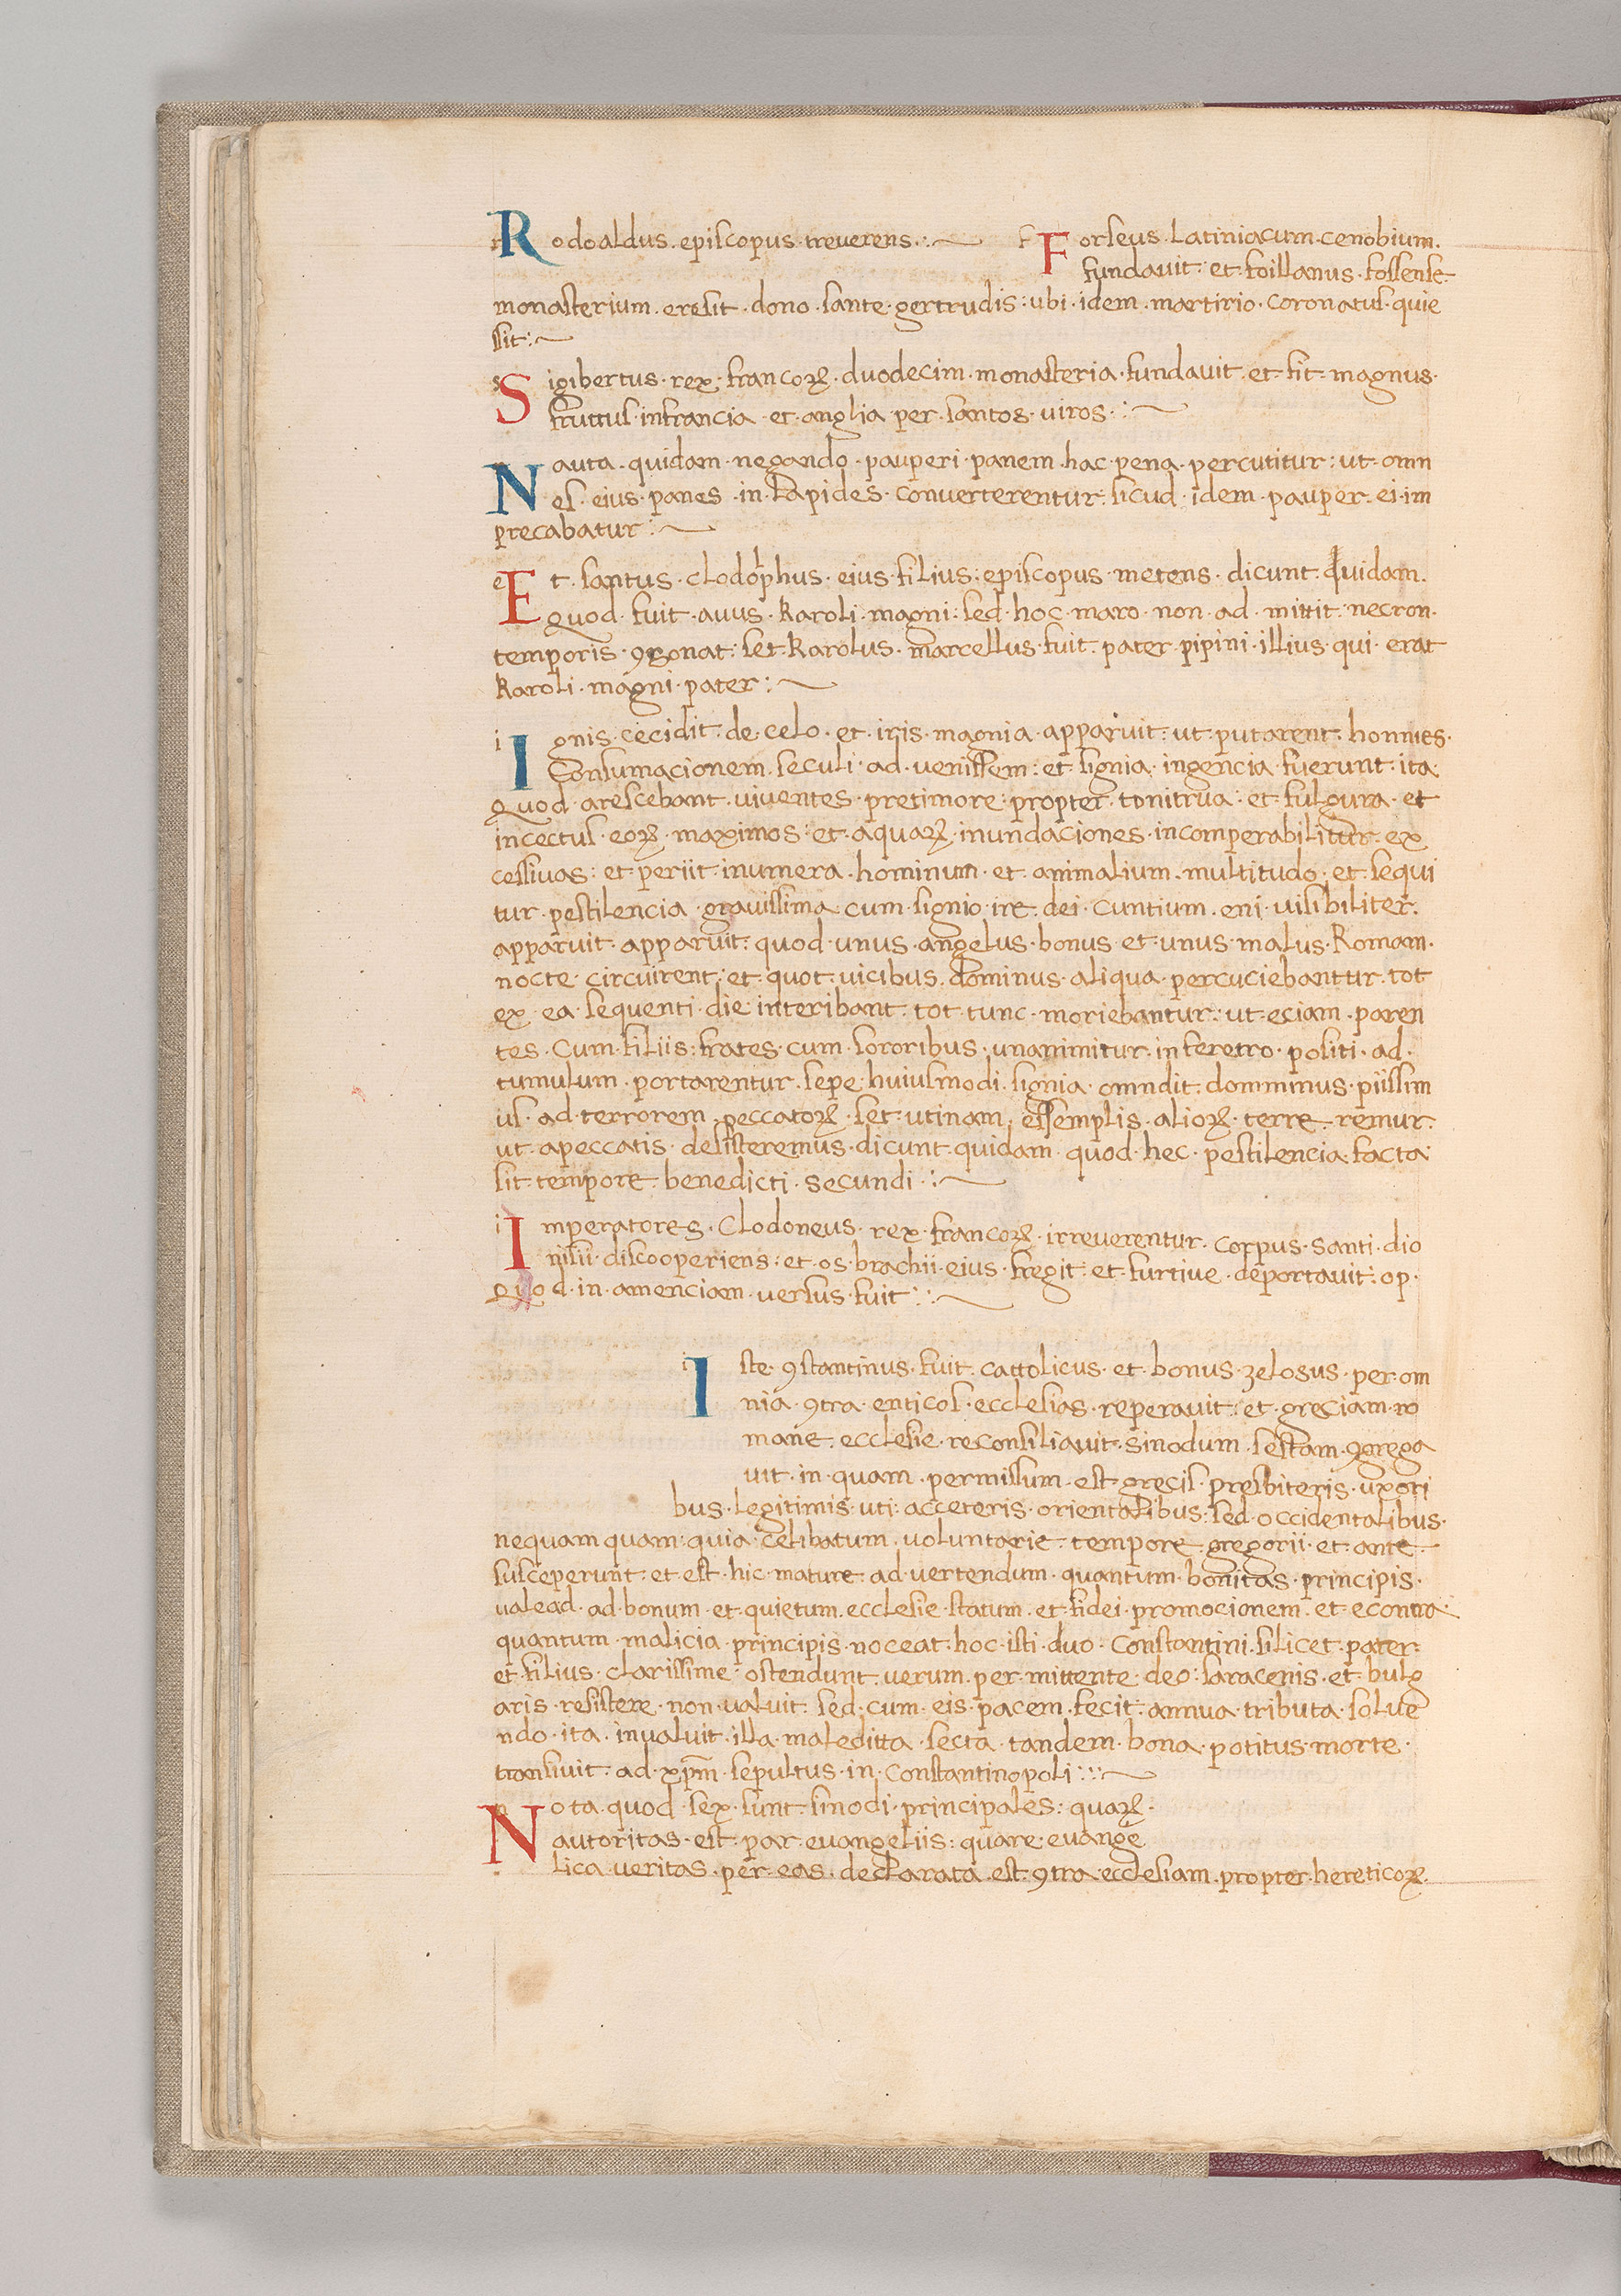 Rodoaldus · episcopus · treverens ·:~
Forseus · Latiniacum · cenobium ·
fundavit : et · foillanus · fossense ·
monasterium · eresit · dono · sante · gertrudis : ubi · idem · martirio · coronatus · quie
sit :~
Sigibertus · rex · francoꝝ · duodecim · monasteria · fundavit · et · fit · magnus ·
fruttus · infrancia · et · anglia · per · santos · viros ·:~
Nauta · quidam · negando · pauperi · panem · hac · pena · percutitur : ut · omn
es · eius · panes · in · Lapides · converterentur : sicud · idem · pauper · ei · im
precabatur :~
Et · santus · clodolphus · eius · filius : episcopus · metens · dicunt · Quidam ·
Quod · fuit · avus · Karoli · magni : sed · hoc · maro · non · ad · mittit : necron ·
temporis · ꝯsonat : set · Karolus · marcellus · fuit · pater · pipini · illius · qui · erat
Karoli · magni · pater :~
Ignis · cecidit · de · celo · et · iris · magnia · apparuit : ut · putarent · homines ·
Consumacionem · seculi · ad · venissem : et · signia · ingencia · fuerunt · ita ·
Quod · arescebant · viventes · pretimore : propter · tonitrua : et · fulgura · et
incectus · eoꝝ · maximos : et · aquaꝝ · inundaciones · incomperabilitur · ex
cessivas : et · periit · inumera · hominum · et · animalium · multitudo · et · sequi
tur · pestilencia · gravissima · cum · signio · ire · dei · Cuntium · eni · visibiliter ·
apparuit · apparuit : quod · unus · angelus · bonus · et · unus · malus · Romam ·
nocte · circuirent : et · quot · vicibus · dominus · aliqua · percuciebantur · tot
ex · ea · sequenti · die · interibant · tot · tunc · moriebantur : ut · eciam · paren
tes · Cum · filiis : frates · cum · sororibus · unanimitur · inferetro · positi · ad ·
tumulum · portarentur · sepe · huiusmodi · signia · omndit · domminus · piissim
us · ad · terrorem · peccatoꝝ · set · utinam · essemplis · alioꝝ · terre · remur ·
ut · apeccatis · desisteremus · dicunt · quidam · quod · hec · pestilencia · facta
sit · tempore · benedicti · secundi ·:~
Imperatores · Clodoneus · rex · francoꝝ · irreverentur · corpus · santi · dio
nisii · discooperiens : et · os · brachii · eius · fregit : et · furtive · deportavit : op ·
Quod · in · amenciam · versus · fuit ·:~
Iste · ꝯstantinus · fuit · cattolicus · et · bonus · zelosus · per · om
nia · ꝯtra · enticos · ecclesias · reperavit : et · greciam · ro
mane · ecclesie · reconsiliavit · sinodum · sestam · ꝯgrega
vit · in · quam · permissum · est · grecis · presbiteris · uxori
bus · legitimis · uti : acceteris · orientalibus : sed · occidentalibus ·
nequam quam : quia · celibatum · voluntarie · tempore · gregorii · et · ante ·
susceperunt : et · est · hic · mature · ad · vertendum · quantum · bonitas · principis ·
valead · ad · bonum · et · quietum · ecclesie · statum · et · fidei · promocionem · et · econtra ·
quantum · malicia · principis · noceat · hoc · isti · duo · Constantini · silicet · pater ·
et · filius · clarissime · ostendunt · verum · per · mittente · deo : saracenis · et · bulg
aris · resistere · non · valvit : sed · cum · eis · pacem · fecit : annua · tributa · solve
ndo · ita · invaluit · illa · maleditta · secta · tandem · bona · potitus · morte ·
transivit · ad · xp̄m · sepultus · in · Constantinopoli :~
Nota · quod · sex · sunt · sinodi · principales : quaꝝ ·
autoritas · est · par · euangeliis : quare · euange
lica · veritas · per · eas · declarata · est · ꝯtra · ecclesiam · propter · hereticoꝝ ·